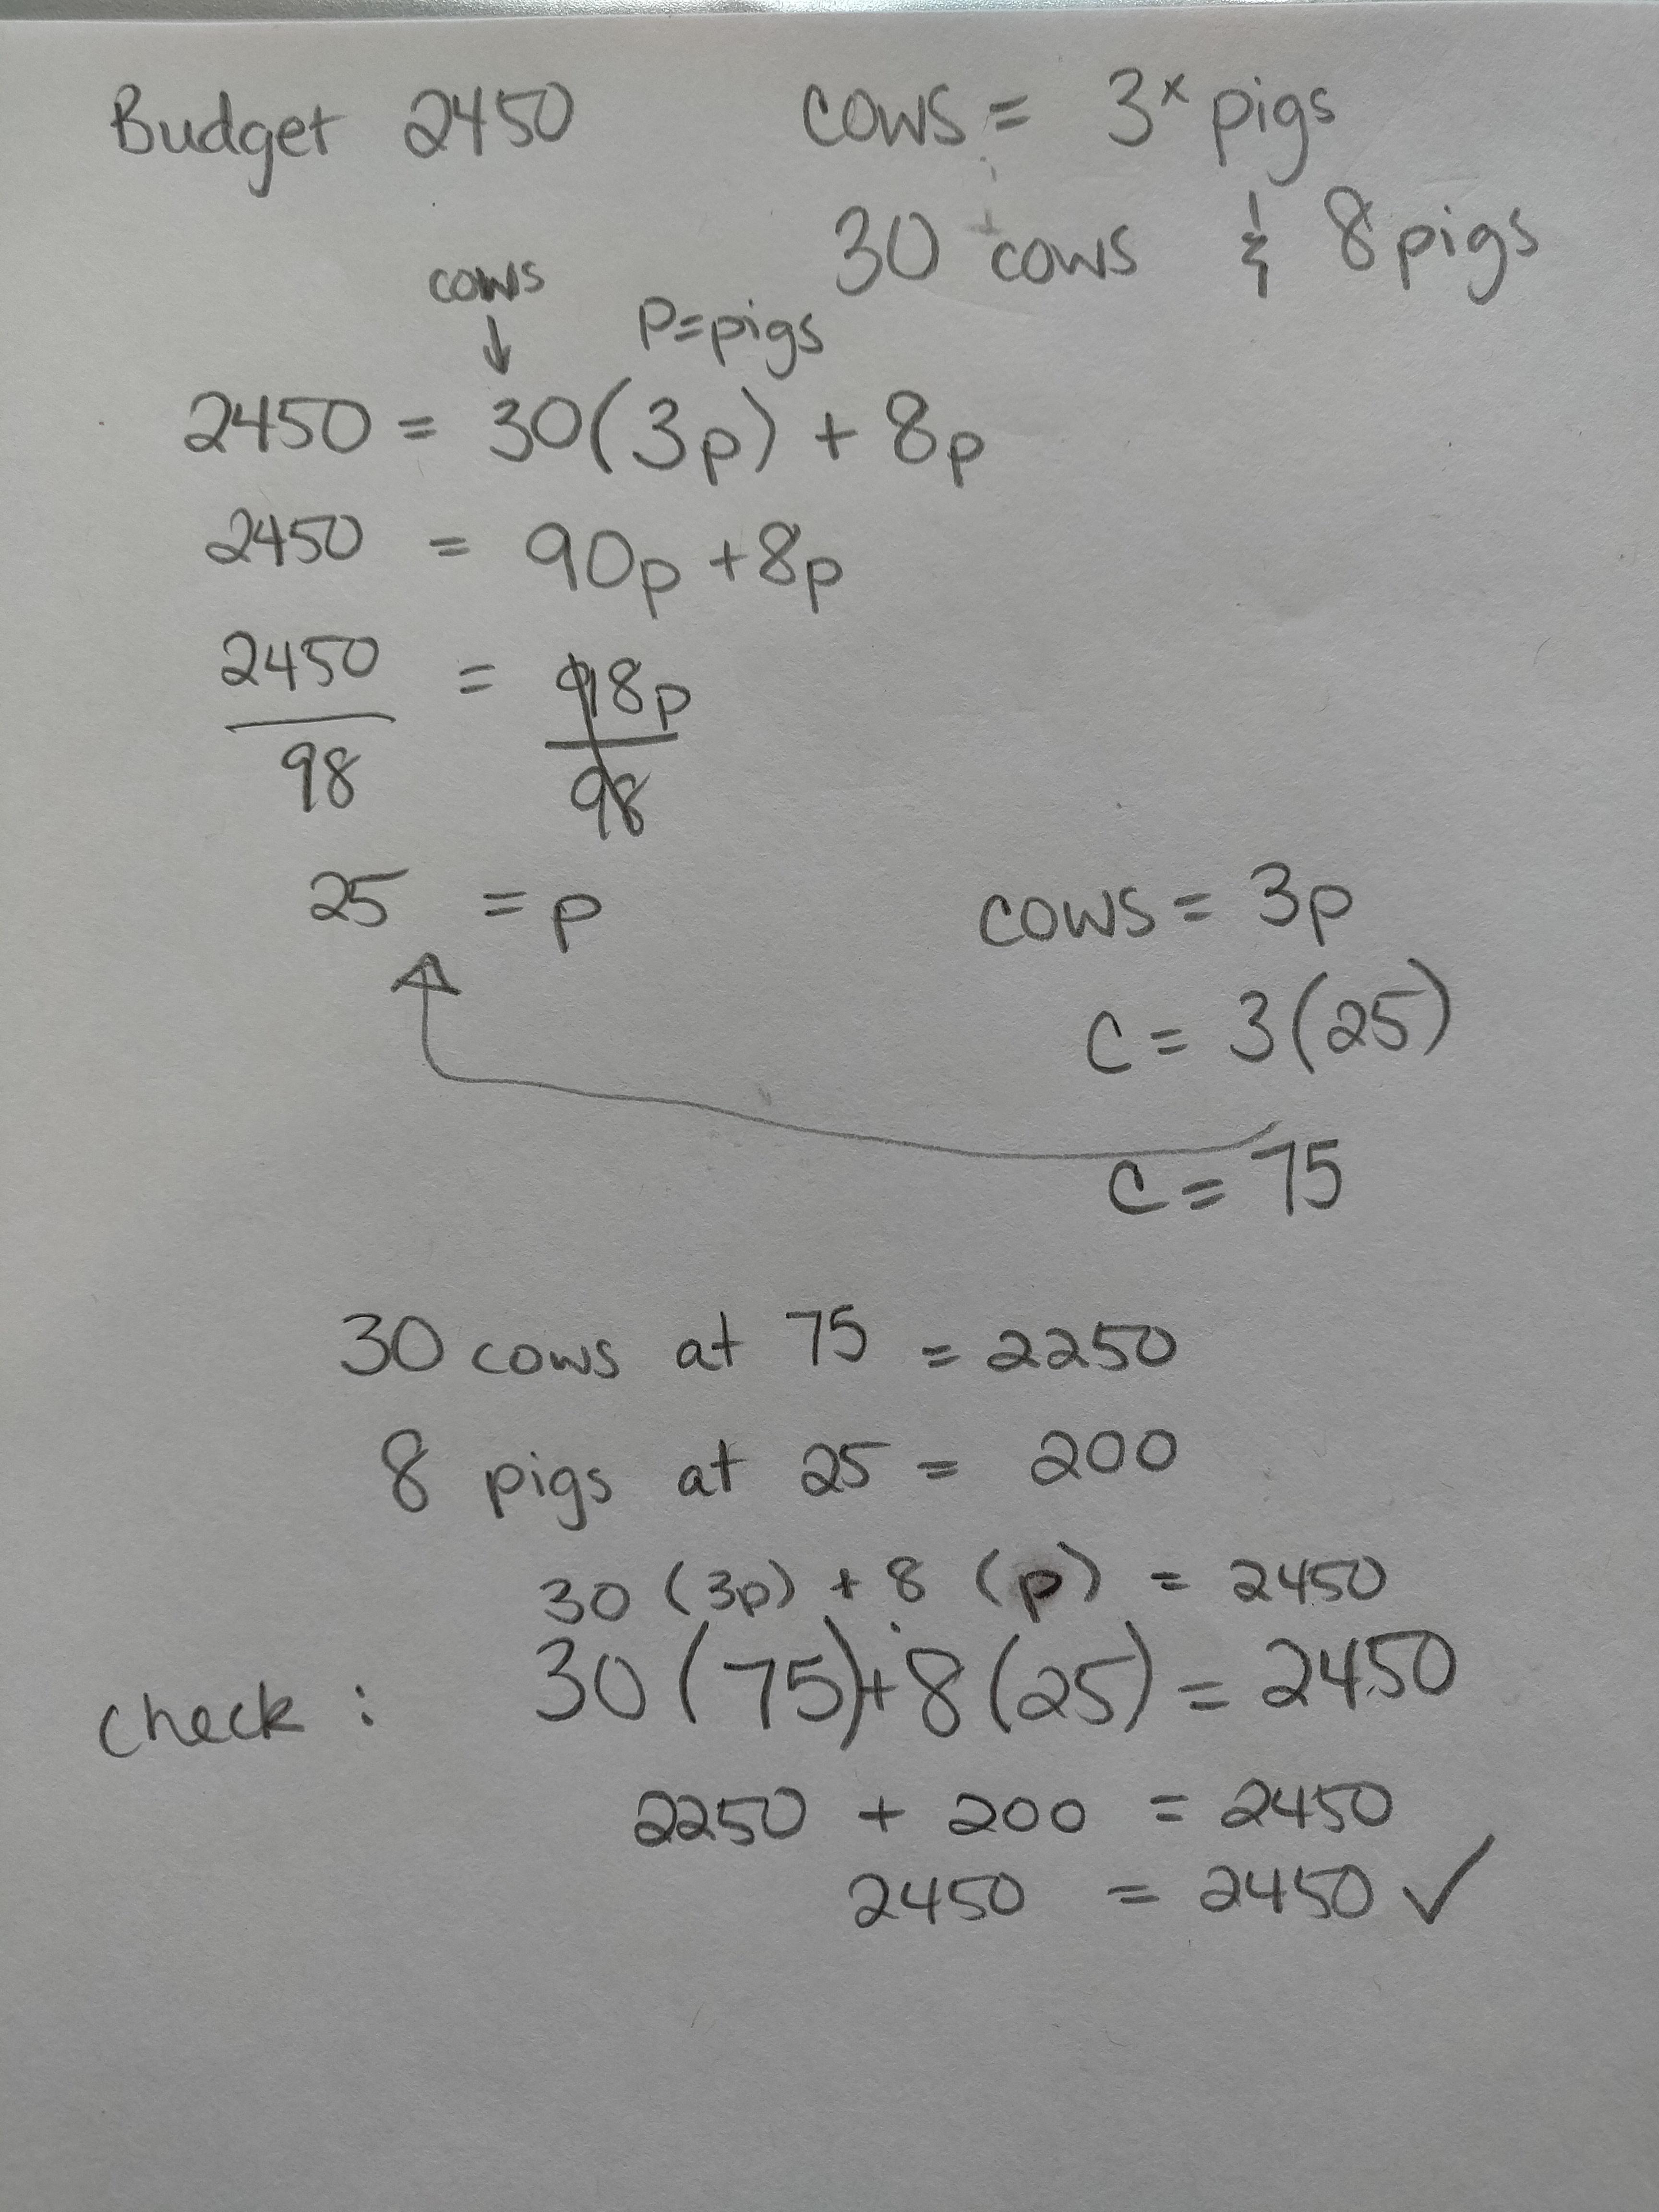 Budget 2450 cows = 3x pigs
30 cows & 8 pigs
cows
↓ P=pigs
2450 = 30(3p) + 8p
2450 = 90p + 8p
2450 = 98p
98 98
25 = p
cows = 3p
c = 3(25)
c = 75
30 cows at 75 = 2250
8 pigs at 25 = 200
30 (3p) + 8 (p) = 2450
check : 30 (75) + 8 (25) = 2450
2250 + 200 = 2450
2450 = 2450 ✓